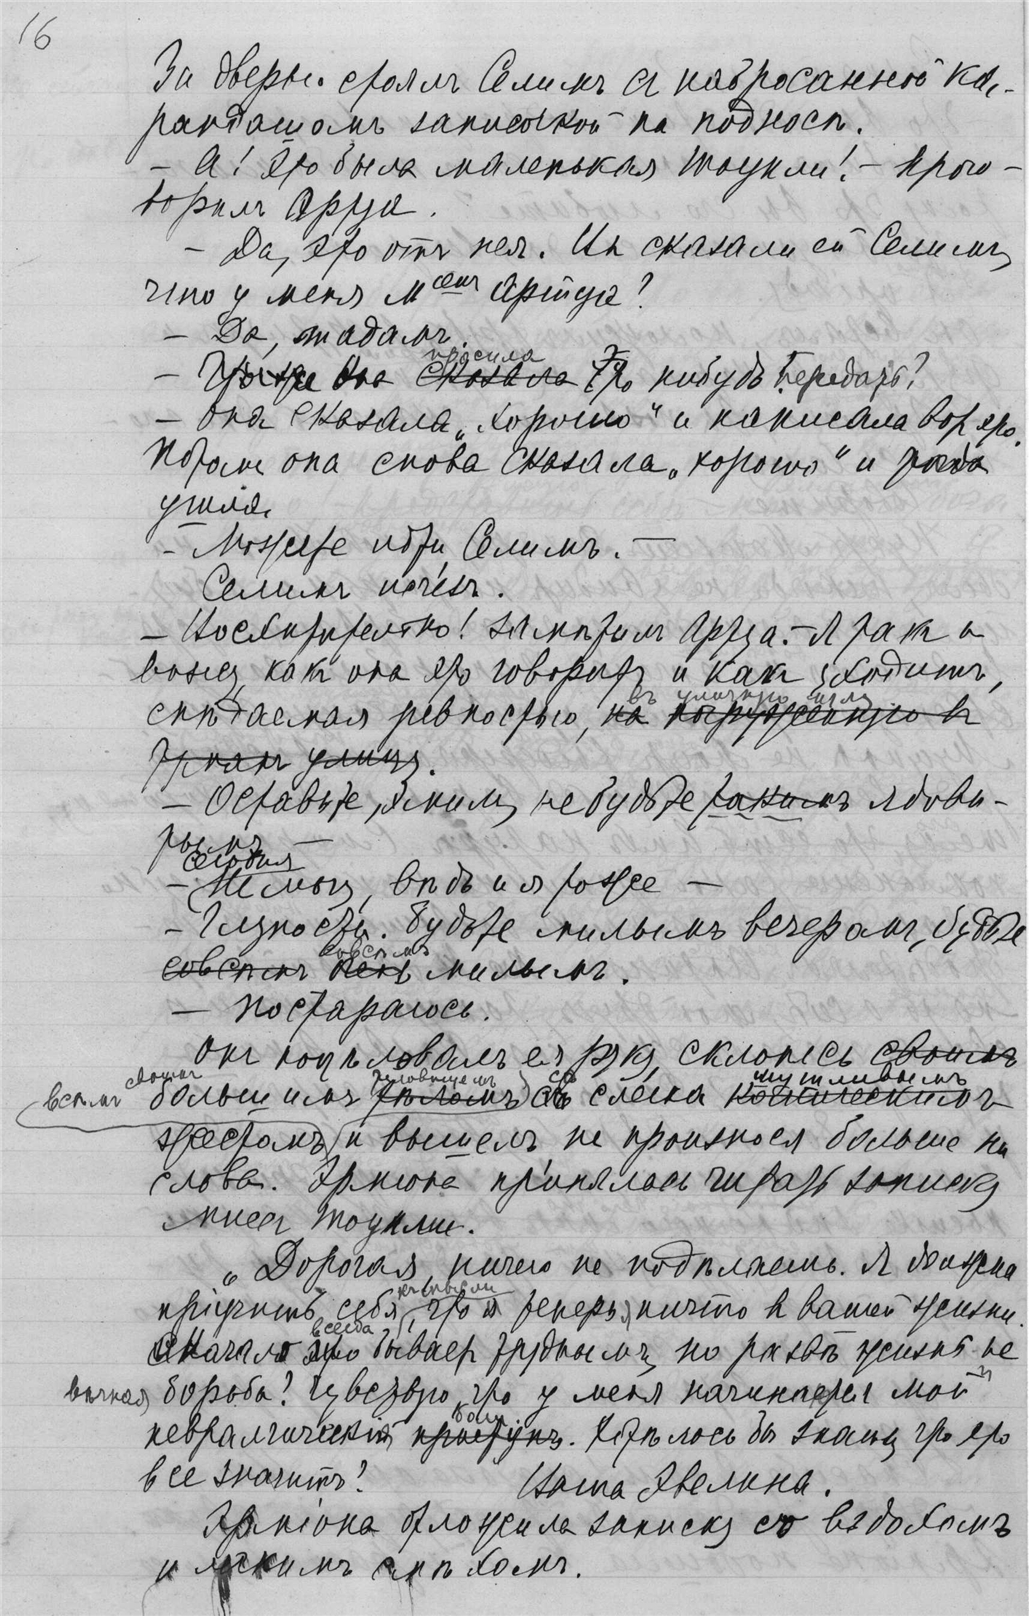 16
За дверью стоялъ Селимъ съ набросанной ка-
рандашомъ записочкой на подносѣ.
– А! Это была маленькая Тоуили! – прого-
ворилъ Артуа.
– Да, это отъ нея. Вы сказали ей Селимъ,
что у меня Мсеиг Артуа?
– Да, мадамъ.
– она сказала просила что нибудь передать?
– Она сказала „хорошо“ и написала вот это.
Потомъ она снова сказала „хорошо“ и тогда
ушла.
– Можете идти Селимъ. –
Селимъ исчезъ.
– Восхитительно! замѣтилъ Артуа. – Я такъ и
вижу, какъ она это говоритъ и какъ уходитъ,
снѣдаемая ревностью, въ уличную мглу на погруженную въ
туманъ улицу.
– Оставьте, милый, не будьте такимъ ядови-
тымъ –
– сегодня Не могу, вѣдь и я тоже –
– Глупости. Будьте милымъ вечеромъ, будьте
совсѣмъ совсѣмъ милымъ.
– Постараюсь.
Онъ поцѣловалъ ея руку, склонясь своимъ
всѣмъ своимъ большимъ тѣломъ туловищемъ съ слегка комическимъ шутливымъ
жестомъ, и вышелъ не произнося больше ни
слова. Эрміона принялась читать записку
миссъ Тоуили.
„Дорогая, ничего не подѣлаешь. Я должна
пріучить себя къ мысли, что я теперь ничто въ вашей жизни.
Сначала это всегда бываетъ труднымъ, но развѣ жизнь не
вѣчная борьба? Чувствую, что у меня начинается мой
невралгическій приступъ боли. Хотѣлось бы знать, что это
все значитъ? Ваша Эвелина.
Эрміона отложила записку со вздохомъ
и легкимъ смѣхомъ.